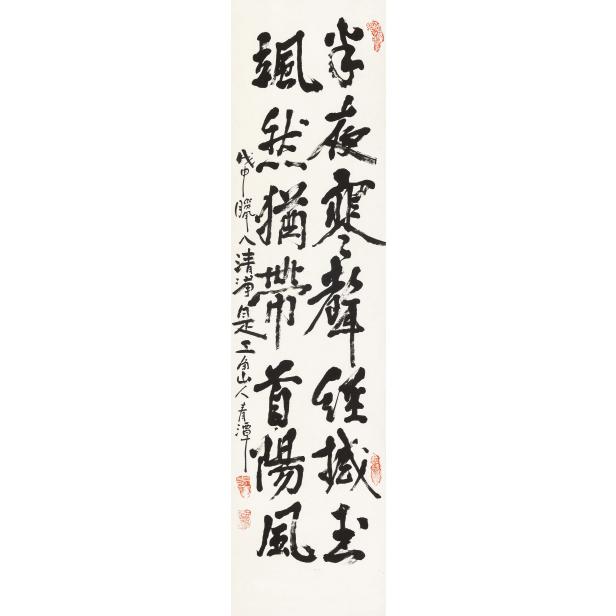 半夜寒聲撼
颯然猶帶首陽風
戊申臘八清是山人青潭